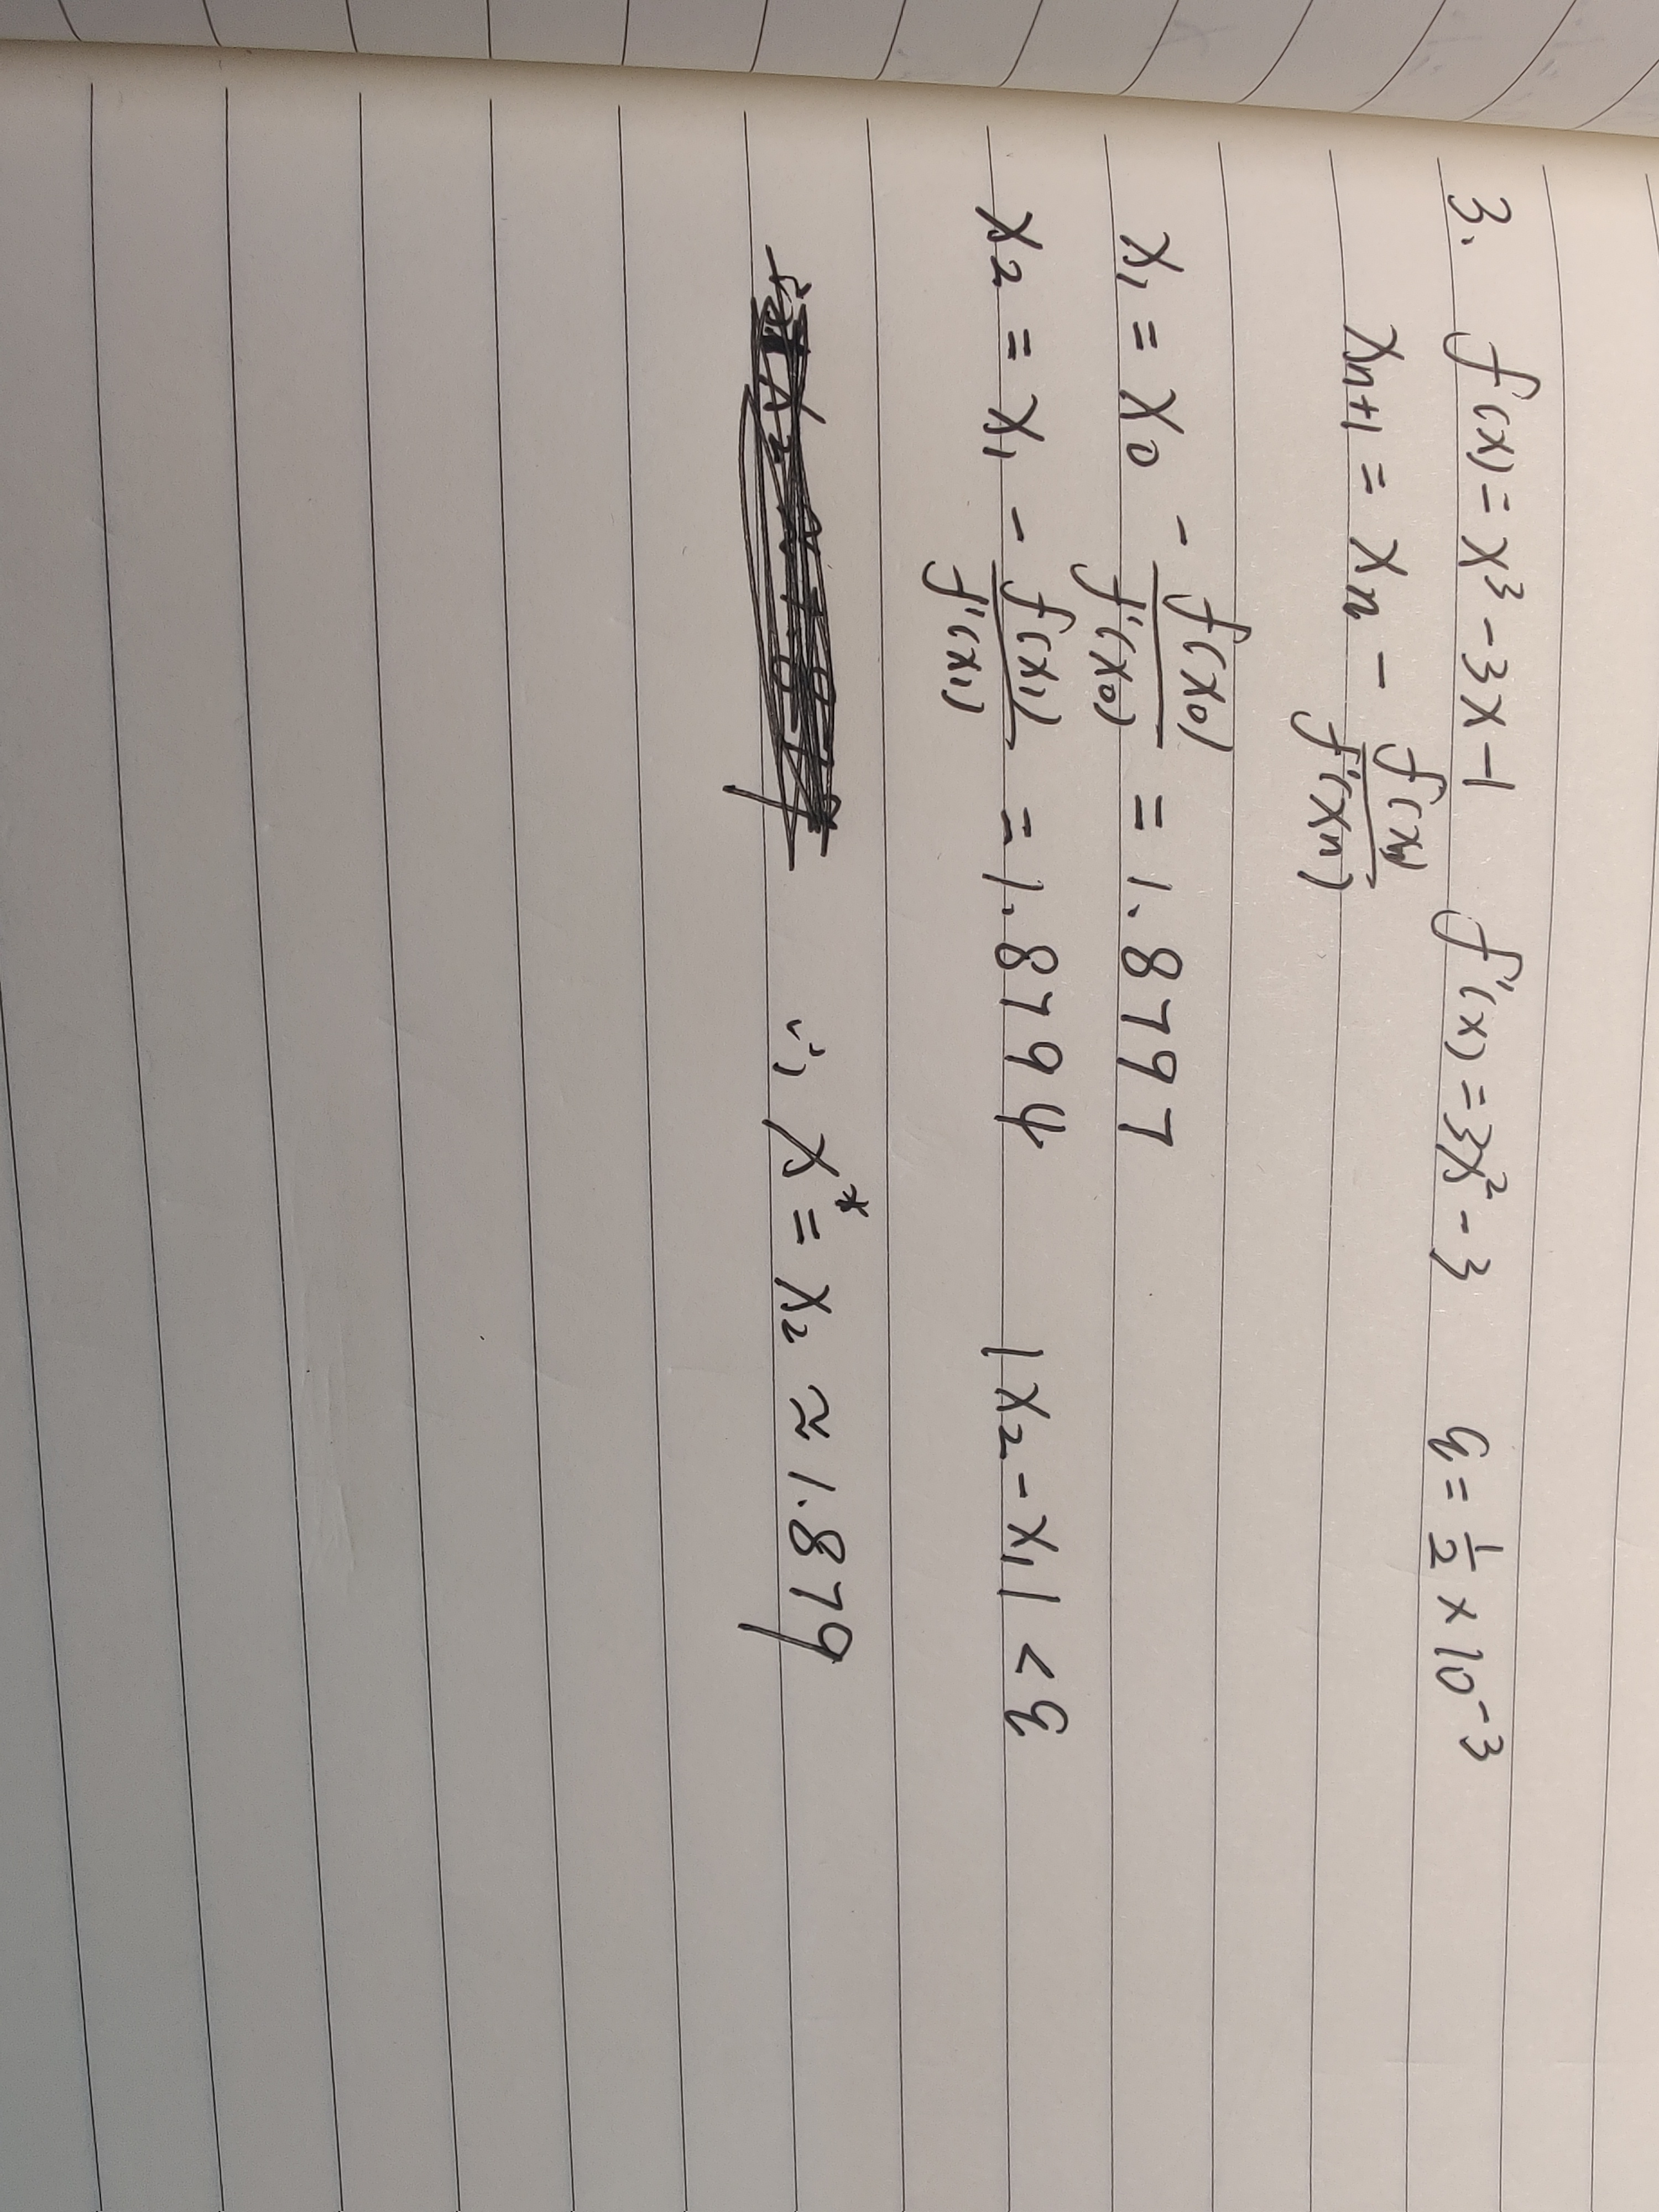 3. f(x) = x³ - 3x - 1 f'(x) = 3x² - 3 ε = 1/2 × 10⁻³
xₙ₊₁ = xₙ - f(xₙ)/f'(xₙ)
x₁ = x₀ - f(x₀)/f'(x₀) = 1.8797
x₂ = x₁ - f(x₁)/f'(x₁) = 1.8794 |x₂ - x₁| < ε
∴ x* = x₂ ≈ 1.879